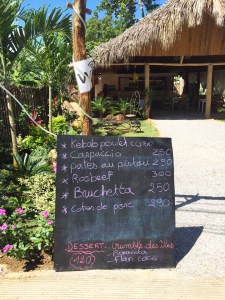 * Kebab poulet
* Carpaccio 250
* pates au pistou 250
* Rosbeef 300
* Bruchetta 250
* Cotes de porc 290
DESSERT. Crumble des îles
(120)
- Flan coco